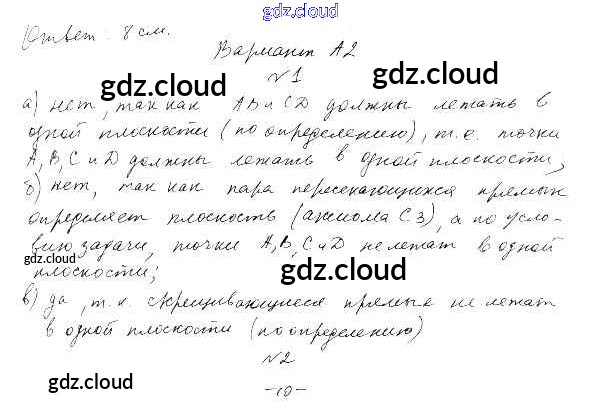 gdz.cloud
Ответ: 8 см.
Вариант А2
gdz.cloud gdz.cloud
№1
а) нет, так как AB и CD должны лежать в
одной плоскости (по определению), т.е. точки
A, B, C и D должны лежать в одной плоскости;
б) нет, так как пара пересекающихся прямых
определяет плоскость (аксиома С3), а по усло-
вию задачи, точки A, B, C и D не лежат в одной
gdz.cloud
плоскости;
gdz.cloud
в) да, т.к. скрещивающиеся прямые не лежат
в одной плоскости (по определению)
№2
gdz.cloud
-10-
gdz.cloud